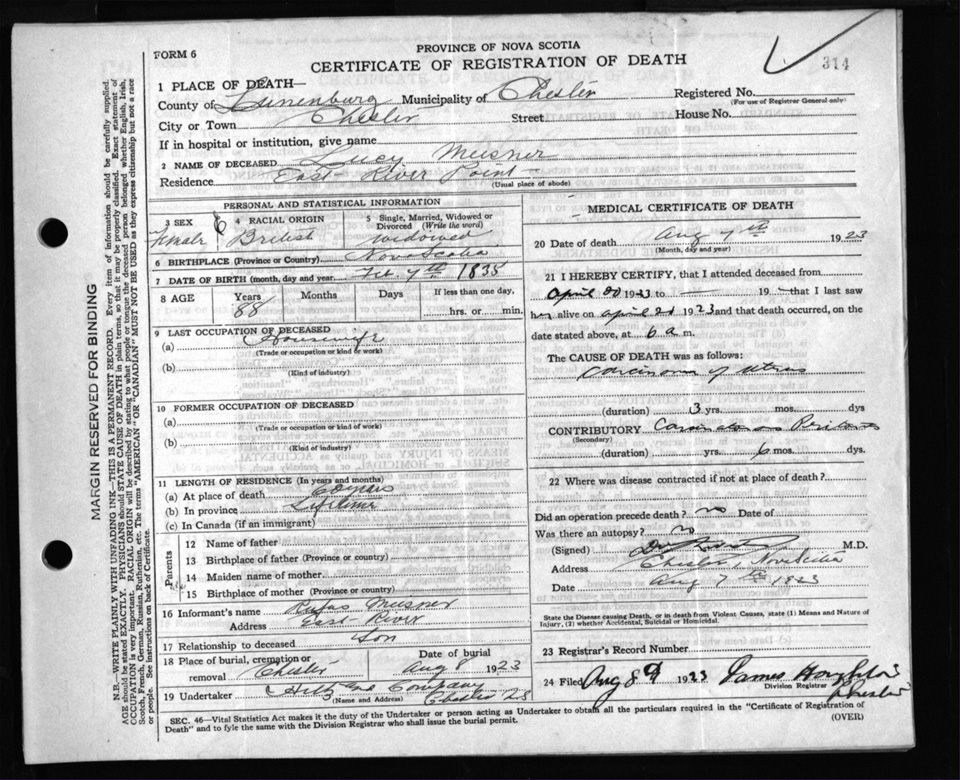 FORM 6
PROVINCE OF NOVA SCOTIA
CERTIFICATE OF REGISTRATION OF DEATH
314
1 PLACE OF DEATH—
County of Lunenburg Municipality of Chester Registered No.
(For use of Registrar General only)
City or Town Chester Street House No.
If in hospital or institution, give name
2 NAME OF DECEASED Lucy Meisner
Residence East River Point
(Usual place of abode)
PERSONAL AND STATISTICAL INFORMATION
3 SEX Female
4 RACIAL ORIGIN British
5 Single, Married, Widowed or Divorced (Write the word) widowed
6 BIRTHPLACE (Province or Country) Nova Scotia
7 DATE OF BIRTH (month, day and year) Feb. 7th 1835
8 AGE Years 88 Months Days If less than one day, hrs. or min.
9 LAST OCCUPATION OF DECEASED
(a) Housewife
(Trade or occupation or kind of work)
(b)
(Kind of industry)
10 FORMER OCCUPATION OF DECEASED
(a)
(Trade or occupation or kind of work)
(b)
(Kind of industry)
11 LENGTH OF RESIDENCE (In years and months)
(a) At place of death
(b) In province Lifetime
(c) In Canada (if an immigrant)
Parents
12 Name of father
13 Birthplace of father (Province or country)
14 Maiden name of mother
15 Birthplace of mother (Province or country)
16 Informant's name Rufus Meisner
Address East River
17 Relationship to deceased Son
18 Place of burial, cremation or removal Chester Date of burial Aug 8 1923
19 Undertaker Hilts and Company
(Name and Address) Chester NS
MEDICAL CERTIFICATE OF DEATH
20 Date of death Aug 7th 1923
(Month, day and year)
21 I HEREBY CERTIFY, that I attended deceased from
April 20 1923 to — 19— that I last saw
her alive on April 20 1923 and that death occurred, on the
date stated above, at 6 a m.
The CAUSE OF DEATH was as follows:
Carcinoma of uterus
(duration) 3 yrs. mos. dys
CONTRIBUTORY
(Secondary)
(duration) yrs. 6 mos. dys.
22 Where was disease contracted if not at place of death?
Did an operation precede death? no Date of
Was there an autopsy? no
(Signed) M.D.
Address Chester, Nova Scotia
Date Aug 7th 1923
State the Disease causing Death, or in death from Violent Causes, state (1) Means and Nature of
Injury, (2) whether Accidental, Suicidal or Homicidal.
23 Registrar's Record Number
24 Filed Aug 8 1923 James
Division Registrar
Chester
SEC. 46—Vital Statistics Act makes it the duty of the Undertaker or person acting as Undertaker to obtain all the particulars required in the "Certificate of Registration of
Death" and to fyle the same with the Division Registrar who shall issue the burial permit.
(OVER)
MARGIN RESERVED FOR BINDING
N.B.—WRITE PLAINLY WITH UNFADING INK—THIS IS A PERMANENT RECORD. Every item of information should be carefully supplied.
AGE should be stated EXACTLY. PHYSICIANS should STATE CAUSE OF DEATH in plain terms, so that it may be properly classified. Exact statement of
OCCUPATION is very important. RACIAL ORIGIN will be described by stating to what people or tongue the deceased person belonged whether English, Irish,
Scotch, French, German, Russian, Ruthenian, etc. The terms "AMERICAN" OR "CANADIAN" MUST NOT BE USED as they express citizenship but not a race
or people. See instructions on back of Certificate.